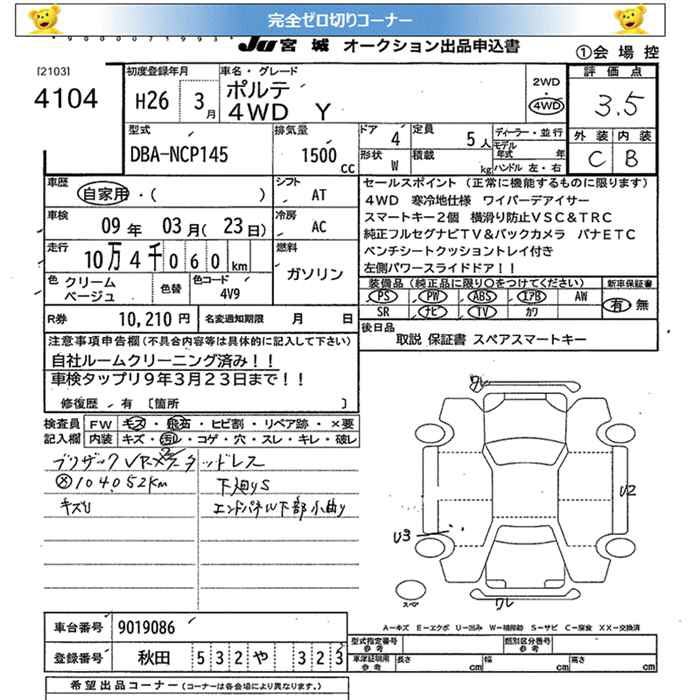 完全ゼロ切りコーナー
JU 宮城 オークション出品申込書
①会場控
[2103]
4104
初度登録年月
H26 3月
車名・グレード
ポルテ
4WD Y
2WD
・
4WD
評価点
3.5
外装 内装
C B
型式
DBA-NCP145
排気量
1500 cc
ドア 4
定員 5人
ディーラー・並行
モデル年式 年
形状 W
積載 kg
ハンドル 左・右
車歴
自家用・( )
シフト
AT
車検
09年 03月(23日)
冷房
AC
走行
10万4千060km
燃料
ガソリン
色 クリームベージュ
色替
色コード
4V9
R券 10,210円
名変通知期限 月 日
セールスポイント (正常に機能するものに限ります)
4WD 寒冷地仕様 ワイパーデアイサー
スマートキー2個 横滑り防止VSC&TRC
純正フルセグナビTV&バックカメラ パナETC
ベンチシートクッショントレイ付き
左側パワースライドドア!!
装備品(純正品に限り○をつけてください)
PS PW ABS エアB AW
SR ナビ TV カワ
新車保証書
有 無
後日品
取説 保証書 スペアスマートキー
注意事項申告欄(不具合内容等は具体的に記入して下さい)
自社ルームクリーニング済み!!
車検タップリ9年3月23日まで!!
修復歴・有 〔箇所 〕
検査員記入欄
FW キズ・飛石・ヒビ割・リペア跡・×要
内装 キズ・汚れ・コゲ・穴・スレ・キレ・破レ
ブリザックVRX2スタッドレス
⊗104052km
下廻りS
キズU
エンドパネル下部小曲り
ワレ
U2
U3
ワレ
スペア
A−キズ E−エクボ U−凹み W−補修跡 S−サビ C−腐食 XX−交換済
車台番号 9019086
登録番号 秋田 532 や 323
型式指定番号 参考
類別区分番号 参考
車庫証明用 参考 長さ cm 幅 cm 高さ cm
希望出品コーナー (コーナーは各会場により異なります。)